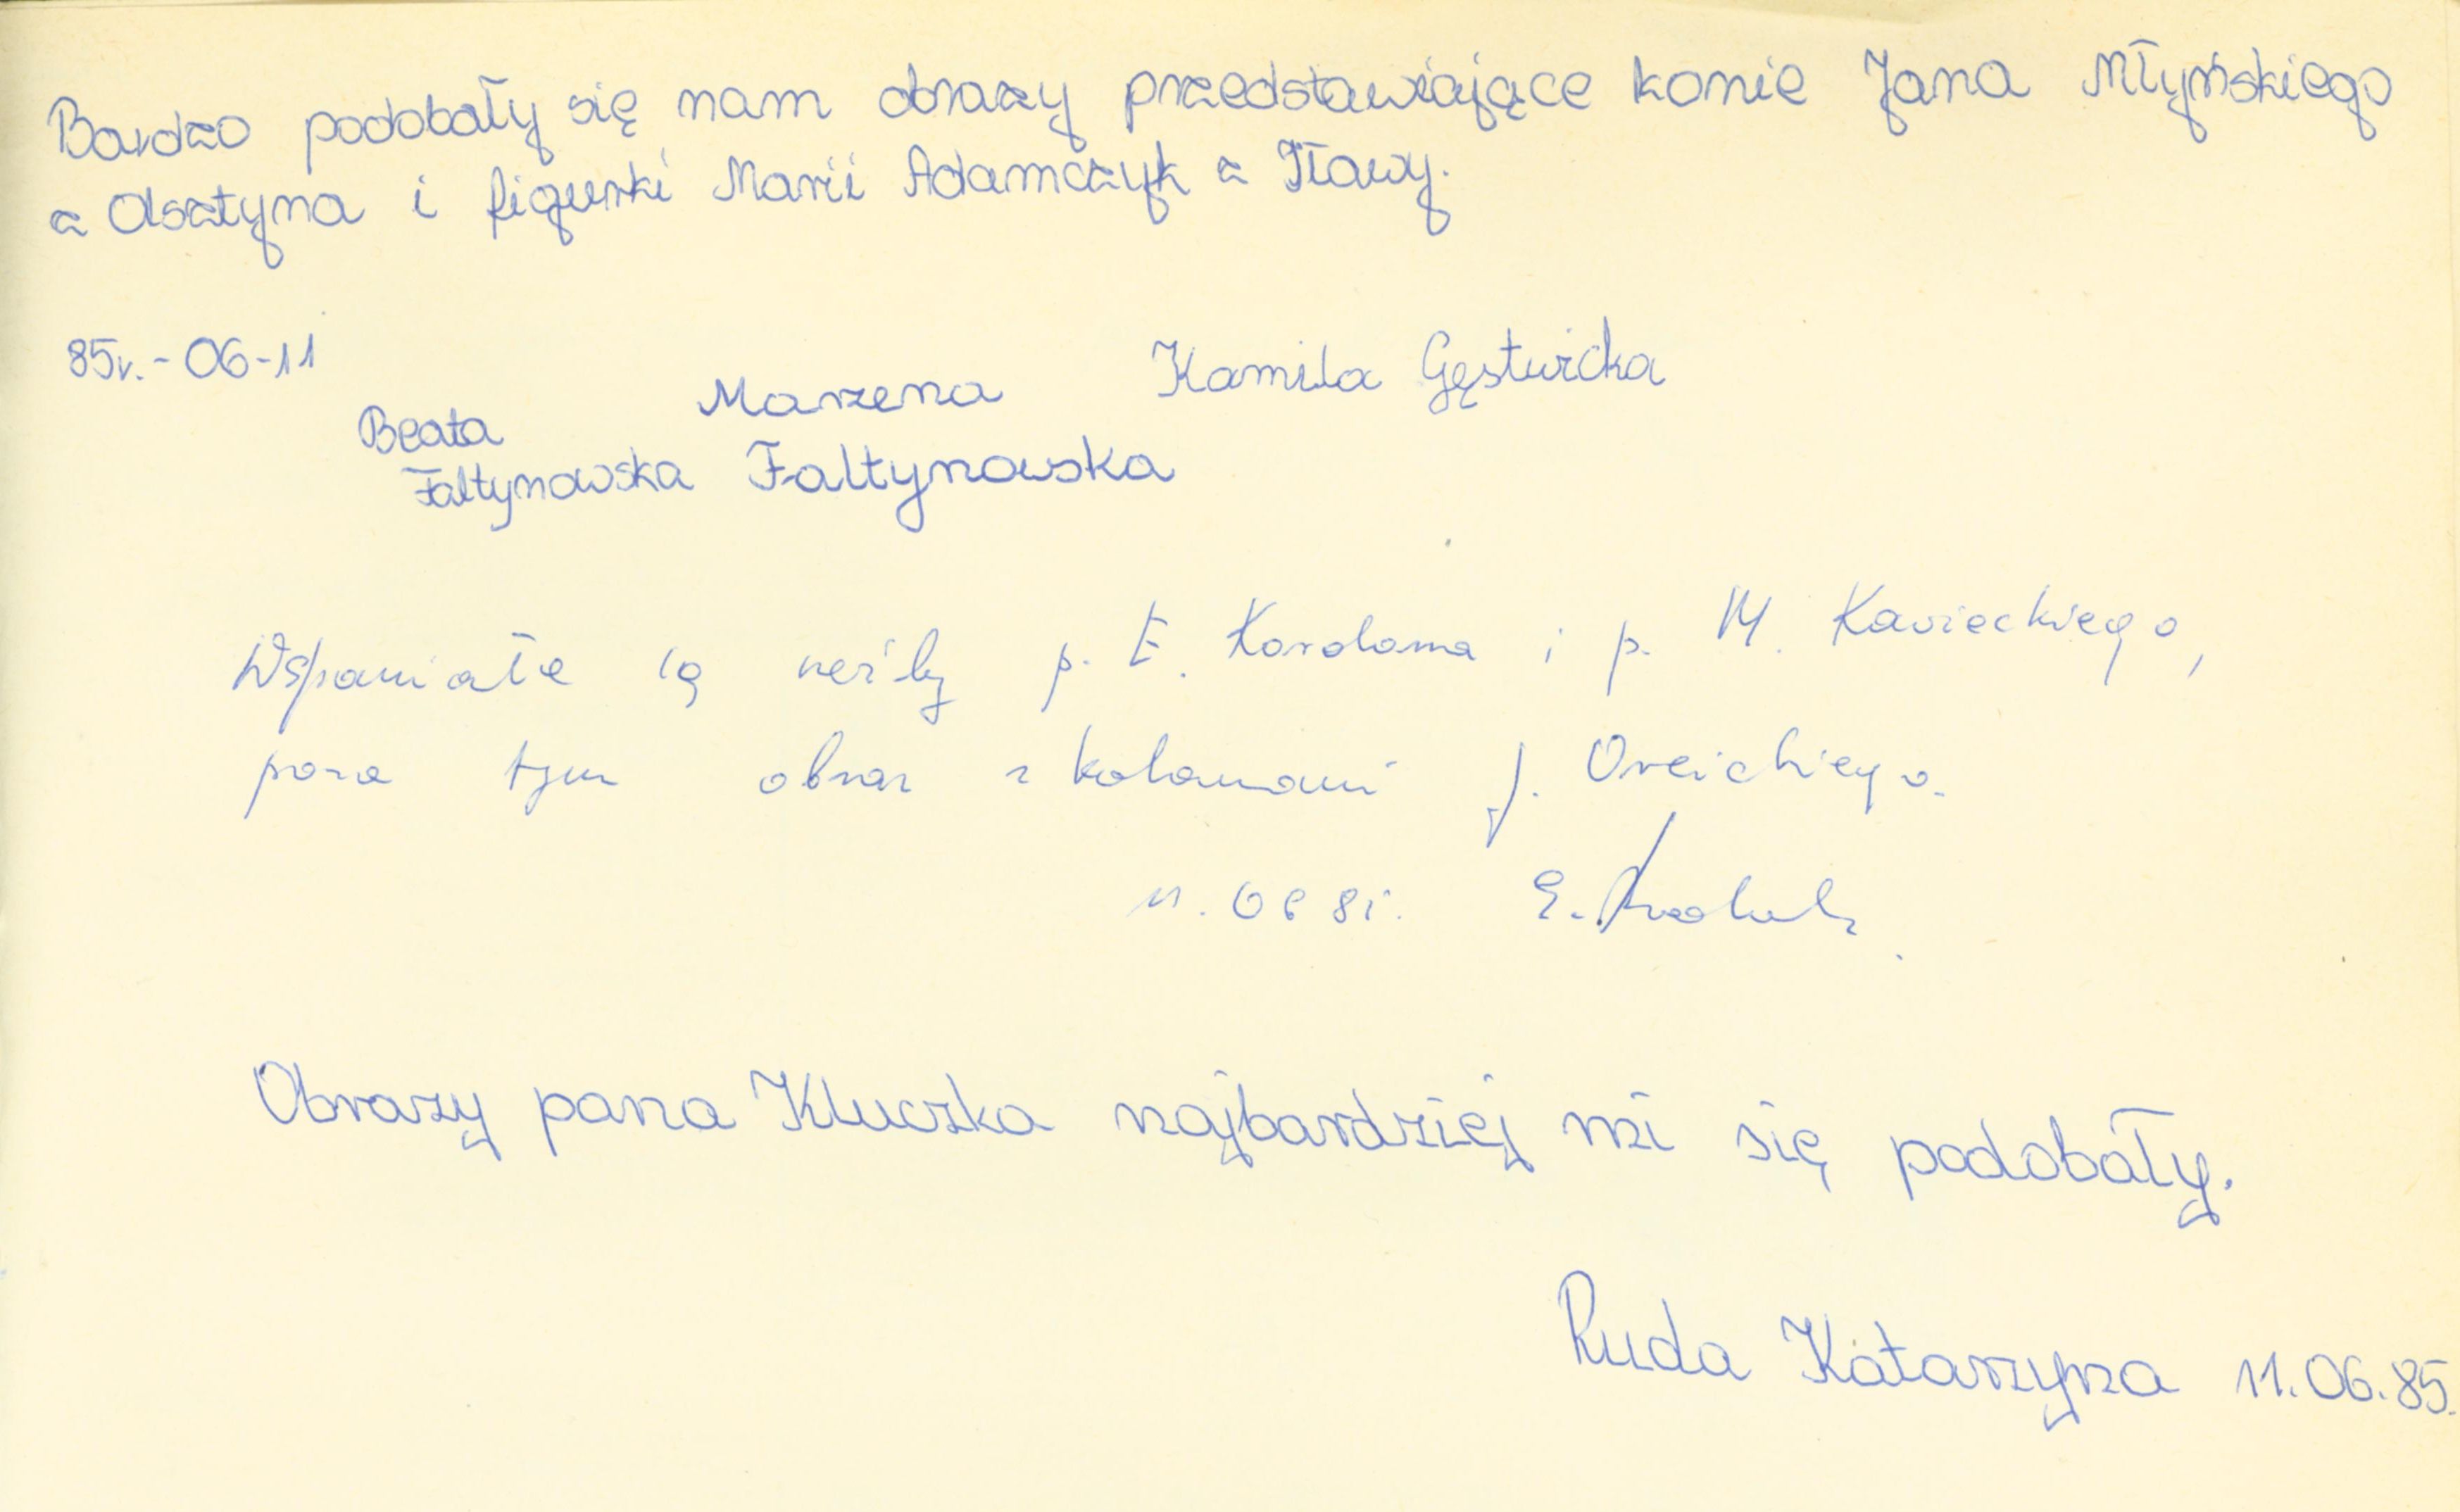 Bardzo podobały się nam obrazy przedstawiające konie Jana Młyńskiego
z Olsztyna i figurki Marii Adamczyk z Iławy.
85r.-06-11
Kamila Gęstwicka
Beata Marzena
Fałtynowska Fałtynowska
Wspaniałe są rzeźby p. E. Kordama i p. M. Kawieckiego,
poza tym obraz z kolanami J. Oreickiego.
11.06 85. E.
Obrazy pana Kluczka najbardziej mi się podobały.
Ruda Katarzyna 11.06.85.